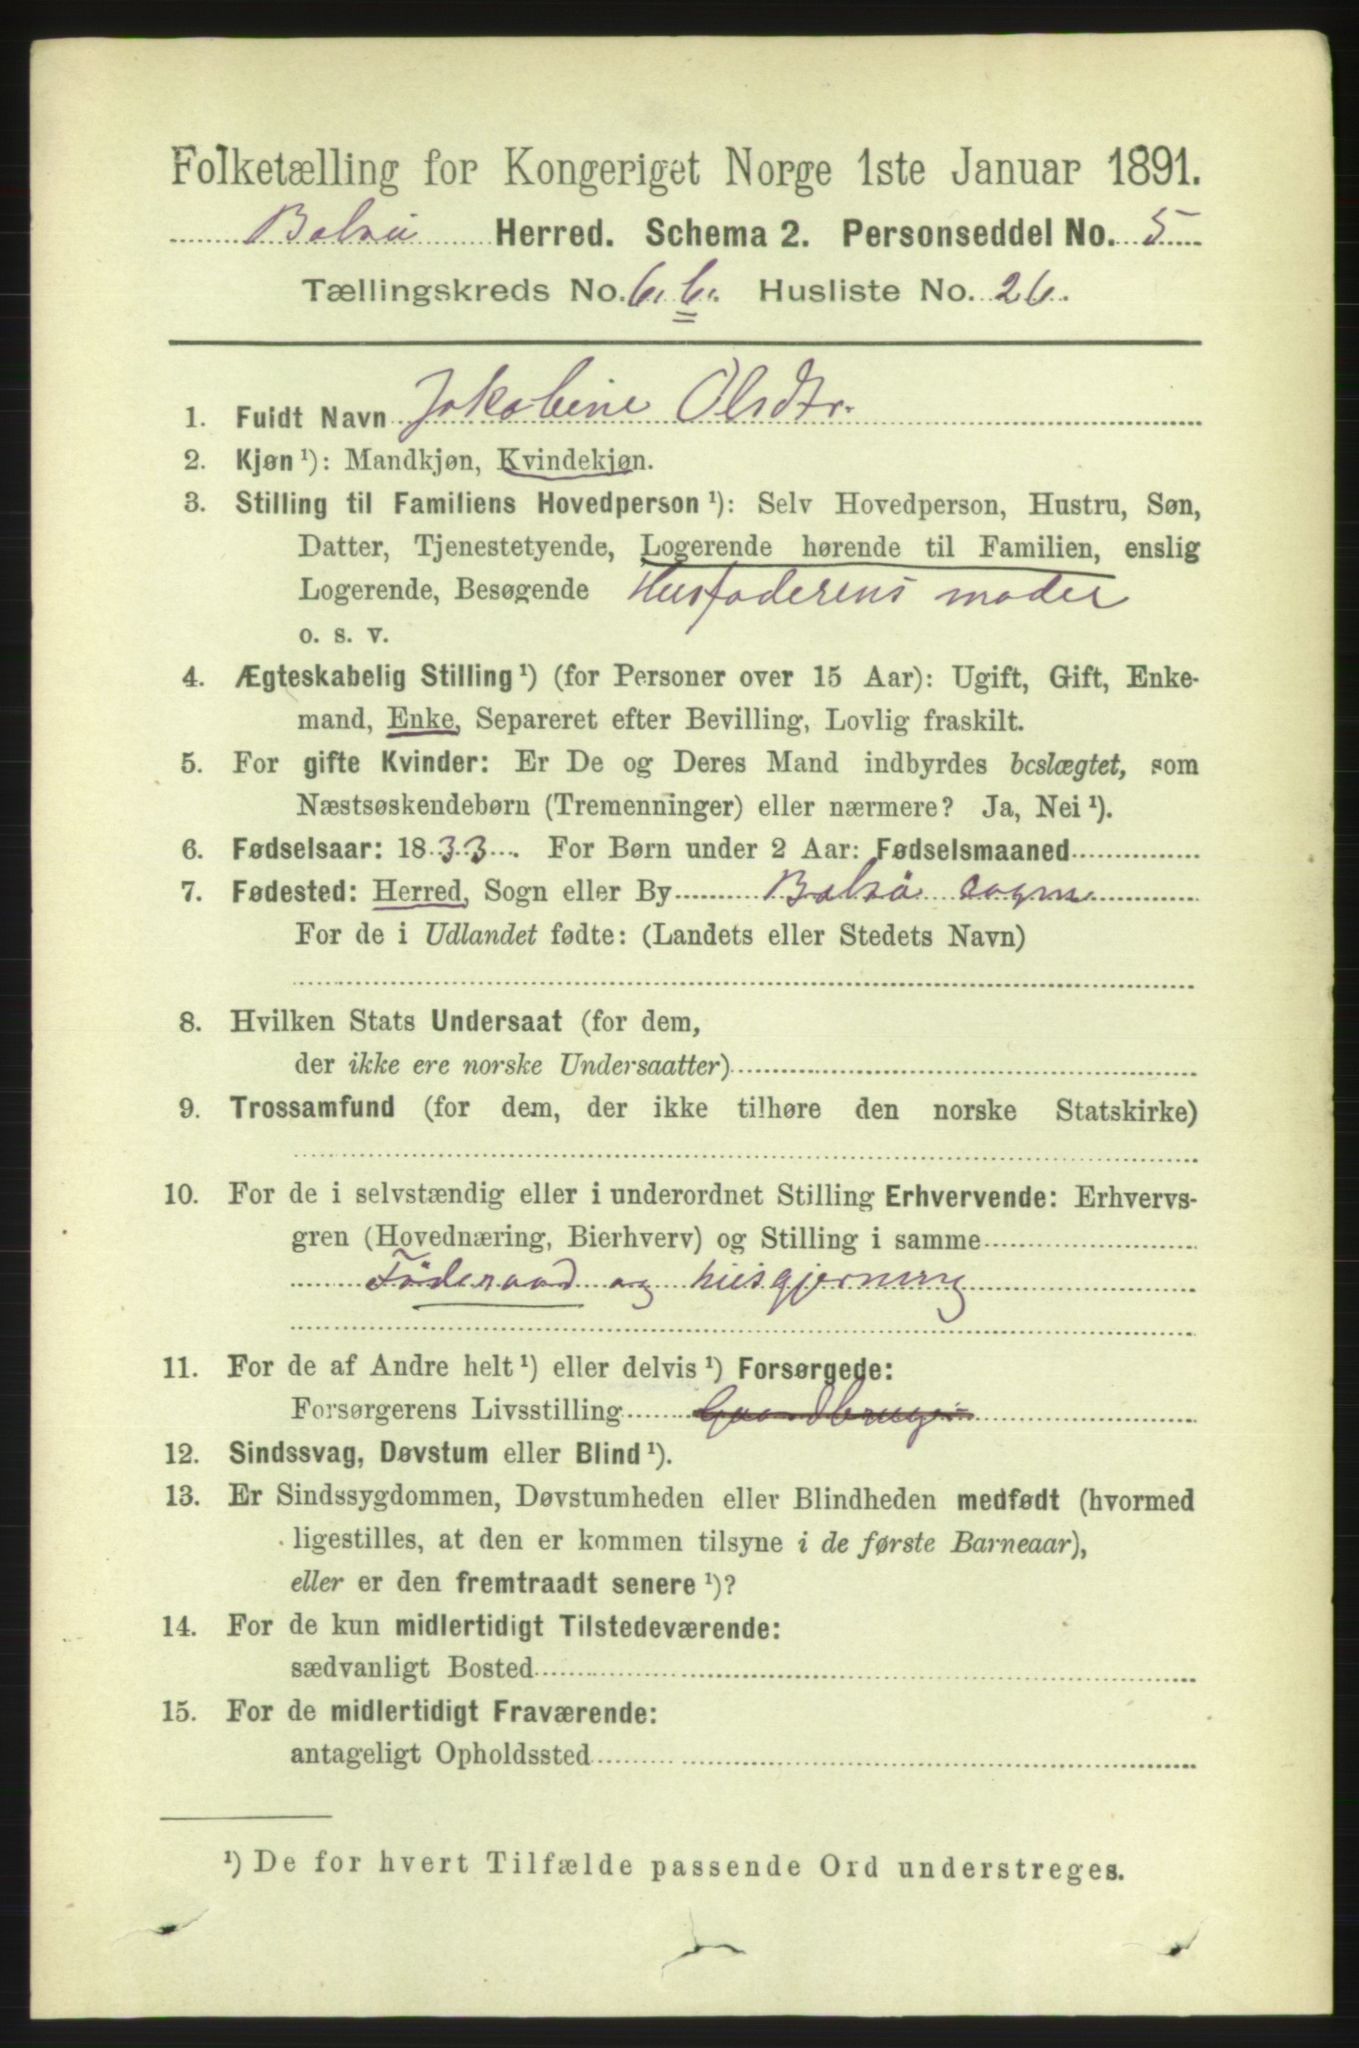 Folketælling for Kongeriget Norge 1ste Januar 1891.
Balsö Herred. Schema 2. Personseddel No. 5
Tællingskreds No. 6.b. Husliste No. 26.
1. Fuldt Navn Jakobine Olsdtr.
2. Kjøn ¹): Mandkjøn, Kvindekjøn.
3. Stilling til Familiens Hovedperson ¹): Selv Hovedperson, Hustru, Søn,
Datter, Tjenestetyende, Logerende hørende til Familien, enslig
Logerende, Besøgende Husfaderens moder
o. s. v.
4. Ægteskabelig Stilling ¹) (for Personer over 15 Aar): Ugift, Gift, Enke-
mand, Enke, Separeret efter Bevilling, Lovlig fraskilt.
5. For gifte Kvinder: Er De og Deres Mand indbyrdes beslægtet, som
Næstsøskendebørn (Tremenninger) eller nærmere? Ja, Nei ¹).
6. Fødselsaar: 1833. For Børn under 2 Aar: Fødselsmaaned
7. Fødested: Herred, Sogn eller By Balsö sogn
For de i Udlandet fødte: (Landets eller Stedets Navn)
8. Hvilken Stats Undersaat (for dem,
der ikke ere norske Undersaatter)
9. Trossamfund (for dem, der ikke tilhøre den norske Statskirke)
10. For de i selvstændig eller i underordnet Stilling Erhvervende: Erhvervs-
gren (Hovednæring, Bierhverv) og Stilling i samme
Föderaad og husgjerning
11. For de af Andre helt ¹) eller delvis ¹) Forsørgede:
Forsørgerens Livsstilling Gaardbruger
12. Sindssvag, Døvstum eller Blind ¹).
13. Er Sindssygdommen, Døvstumheden eller Blindheden medfødt (hvormed
ligestilles, at den er kommen tilsyne i de første Barneaar),
eller er den fremtraadt senere ¹)?
14. For de kun midlertidigt Tilstedeværende:
sædvanligt Bosted
15. For de midlertidigt Fraværende:
antageligt Opholdssted
¹) De for hvert Tilfælde passende Ord understreges.